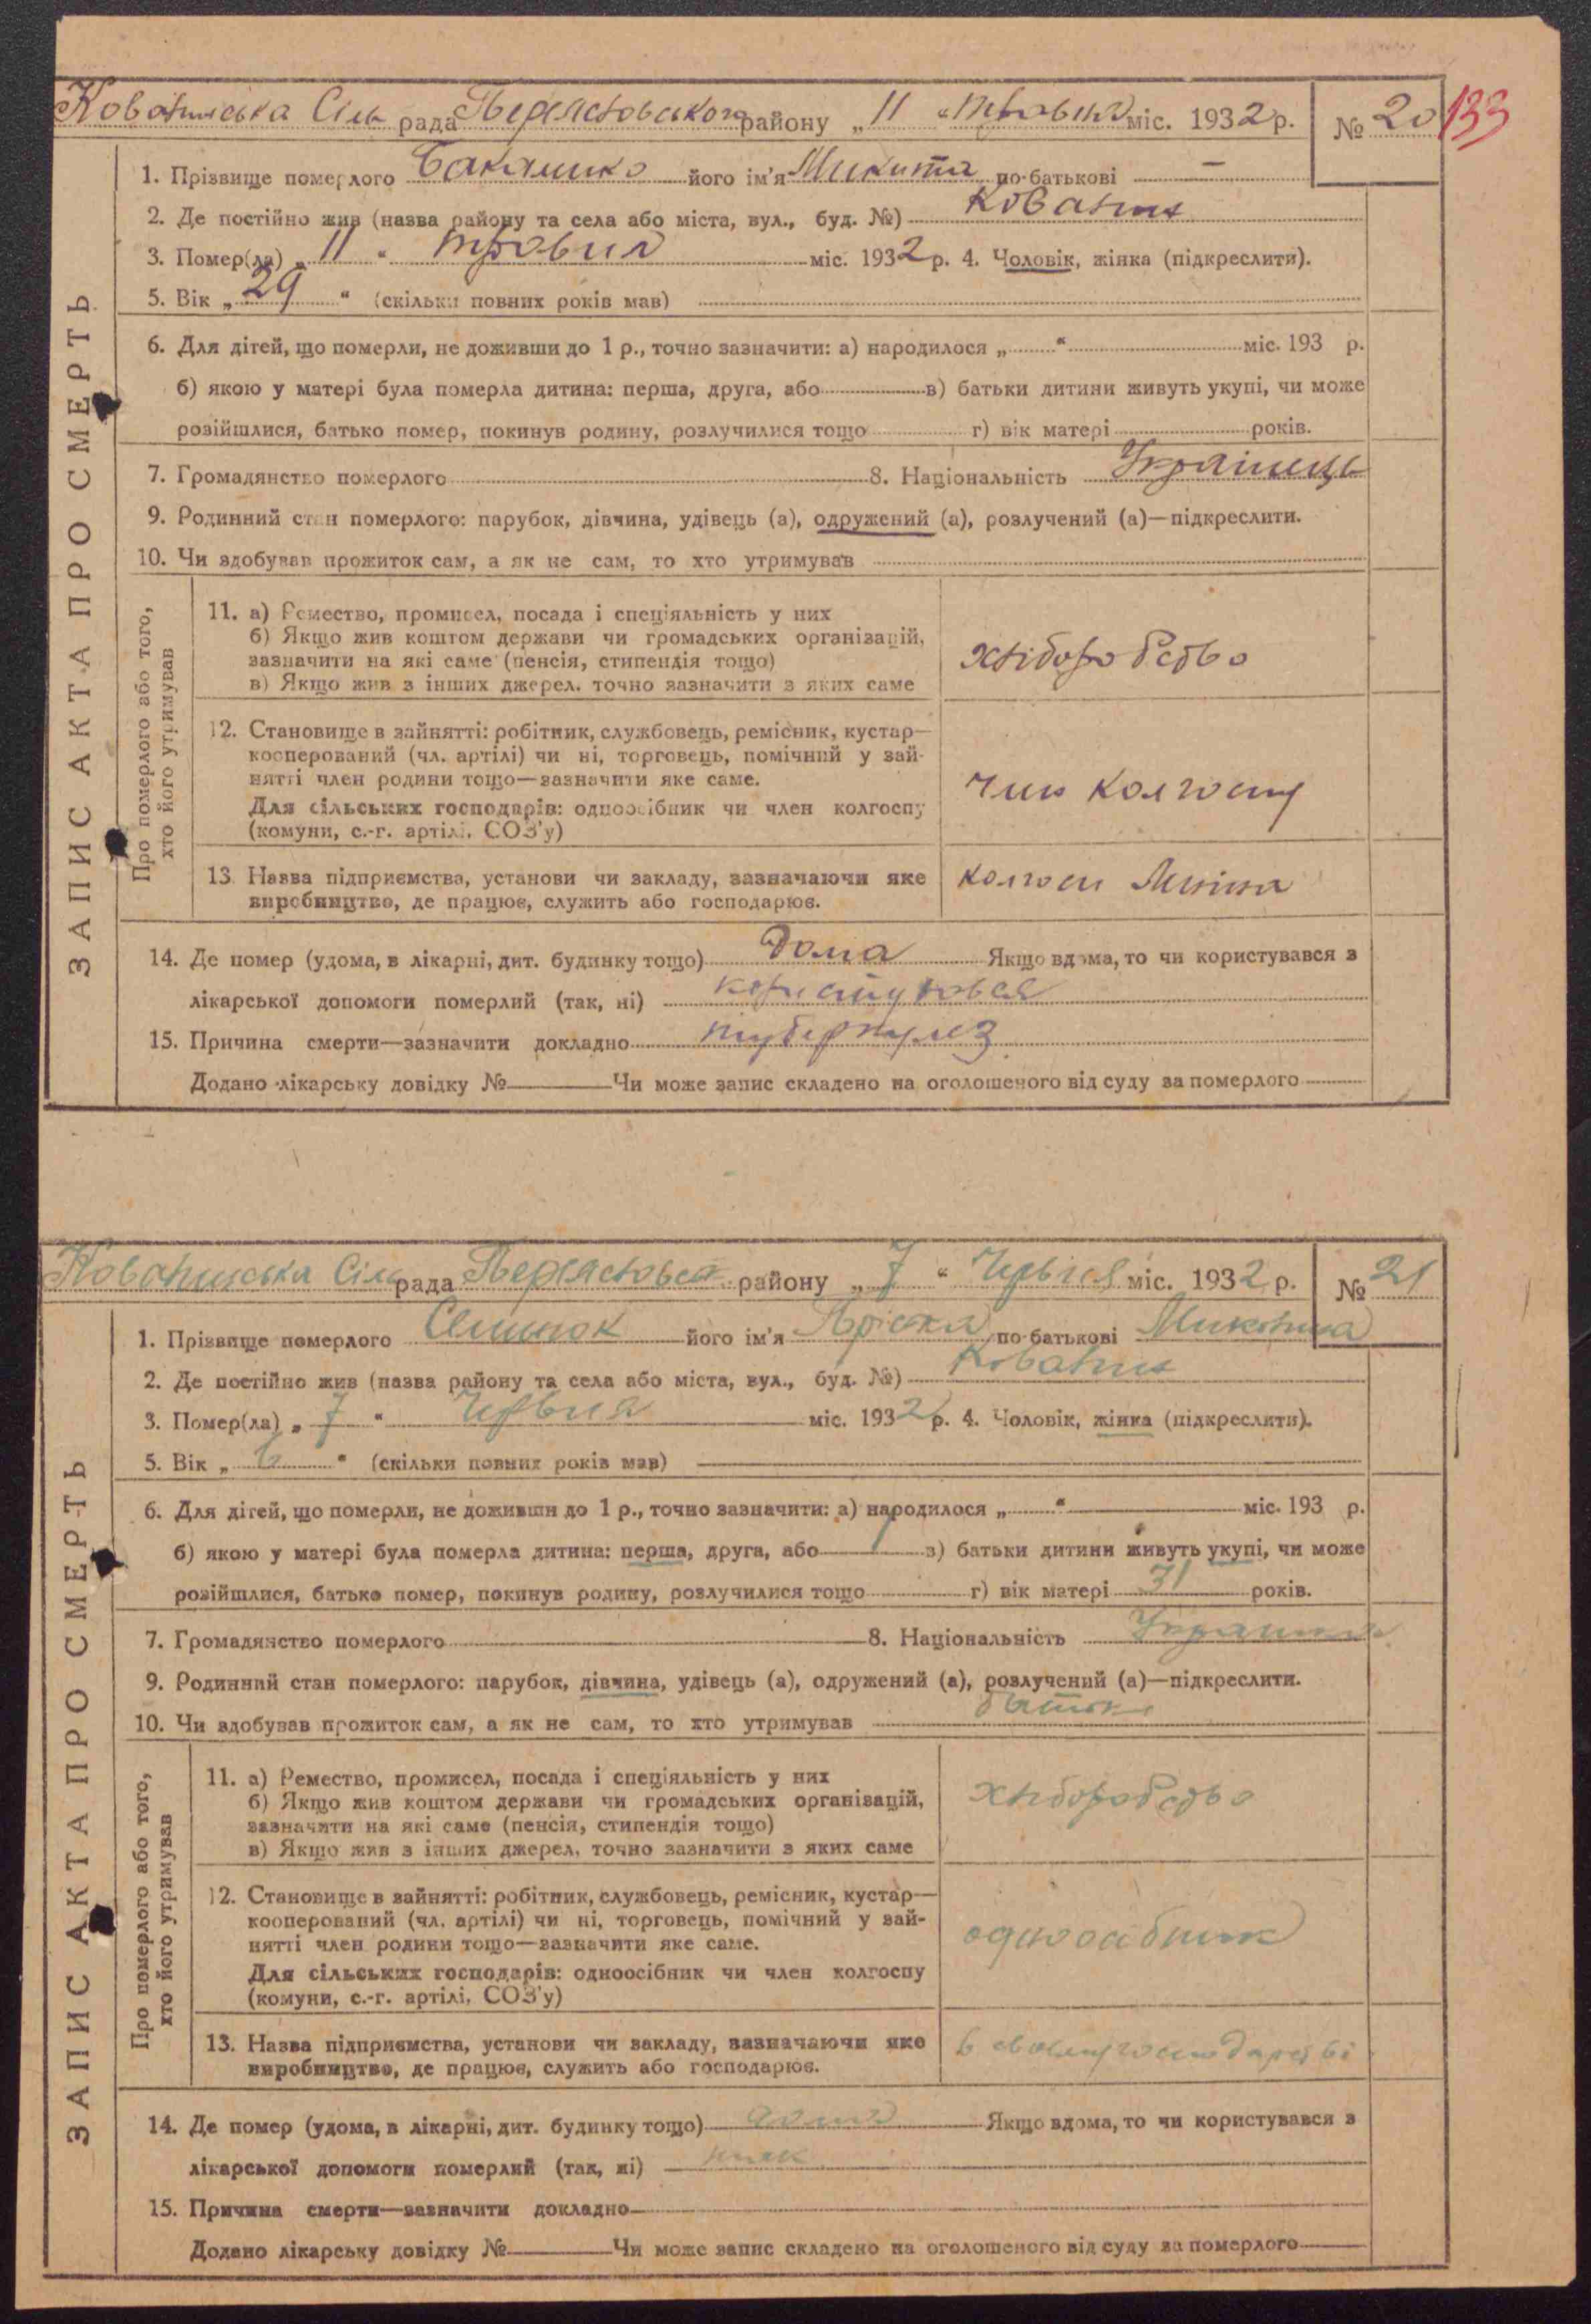 Ковалинська Сіль рада Переяславського району „ 11 “ травня міс. 1932 р. № 20 133
ЗАПИС АКТА ПРО СМЕРТЬ
1. Прізвище померлого його ім'я Микита по-батькові —
2. Де постійно жив (назва району та села або міста, вул., буд. №) Ковалин
3. Помер(ла) „ 11 “ травня міс. 1932 р. 4. Чоловік, жінка (підкреслити).
5. Вік „ 29 “ (скільки повних років мав)
6. Для дітей, що померли, не доживши до 1 р., точно зазначити: а) народилося „ “ міс. 193 р.
б) якою у матері була померла дитина: перша, друга, або в) батьки дитини живуть укупі, чи може
розійшлися, батько помер, покинув родину, розлучилися тощо г) вік матері років.
7. Громадянство померлого 8. Національність Українець
9. Родинний стан померлого: парубок, дівчина, удівець (а), одружений (а), розлучений (а)—підкреслити.
10. Чи здобував прожиток сам, а як не сам, то хто утримував
Про померлого або того, хто його утримував
11. а) Ремество, промисел, посада і спеціяльність у них
б) Якщо жив коштом держави чи громадських організацій,
зазначити на які саме (пенсія, стипендія тощо)
в) Якщо жив з інших джерел, точно зазначити з яких саме
хліборобство
12. Становище в зайнятті: робітник, службовець, ремісник, кустар—
кооперований (чл. артілі) чи ні, торговець, помічний у зай-
нятті член родини тощо—зазначити яке саме.
Для сільських господарів: одноосібник чи член колгоспу
(комуни, с.-г. артілі, СОЗ'у)
член колгоспу
13. Назва підприємства, установи чи закладу, зазначаючи яке
виробництво, де працює, служить або господарює.
колгосп Леніна
14. Де помер (удома, в лікарні, дит. будинку тощо) дома Якщо вдома, то чи користувався з
лікарської допомоги померлий (так, ні) користувався
15. Причина смерти—зазначити докладно туберкульоз
Додано лікарську довідку № Чи може запис складено на оголошеного від суду за померлого
Ковалинська Сіль рада району „ 7 “ Червня міс. 1932 р. № 21
ЗАПИС АКТА ПРО СМЕРТЬ
1. Прізвище померлого його ім'я Пріська по-батькові
2. Де постійно жив (назва району та села або міста, вул., буд. №) Ковалин
3. Помер(ла) „ 7 “ Червня міс. 1932 р. 4. Чоловік, жінка (підкреслити).
5. Вік „ 6 “ (скільки повних років мав)
6. Для дітей, що померли, не доживши до 1 р., точно зазначити: а) народилося „ “ міс. 193 р.
б) якою у матері була померла дитина: перша, друга, або в) батьки дитини живуть укупі, чи може
розійшлися, батько помер, покинув родину, розлучилися тощо г) вік матері 31 років.
7. Громадянство померлого 8. Національність Українка
9. Родинний стан померлого: парубок, дівчина, удівець (а), одружений (а), розлучений (а)—підкреслити.
10. Чи здобував прожиток сам, а як не сам, то хто утримував батько
Про померлого або того, хто його утримував
11. а) Ремество, промисел, посада і спеціяльність у них
б) Якщо жив коштом держави чи громадських організацій,
зазначити на які саме (пенсія, стипендія тощо)
в) Якщо жив з інших джерел, точно зазначити з яких саме
хліборобство
12. Становище в зайнятті: робітник, службовець, ремісник, кустар—
кооперований (чл. артілі) чи ні, торговець, помічний у зай-
нятті член родини тощо—зазначити яке саме.
Для сільських господарів: одноосібник чи член колгоспу
(комуни, с.-г. артілі, СОЗ'у)
одноосібник
13. Назва підприємства, установи чи закладу, зазначаючи яке
виробництво, де працює, служить або господарює.
в своєму господарстві
14. Де помер (удома, в лікарні, дит. будинку тощо) дома Якщо вдома, то чи користувався з
лікарської допомоги померлий (так, ні)
15. Причина смерти—зазначити докладно
Додано лікарську довідку № Чи може запис складено на оголошеного від суду за померлого